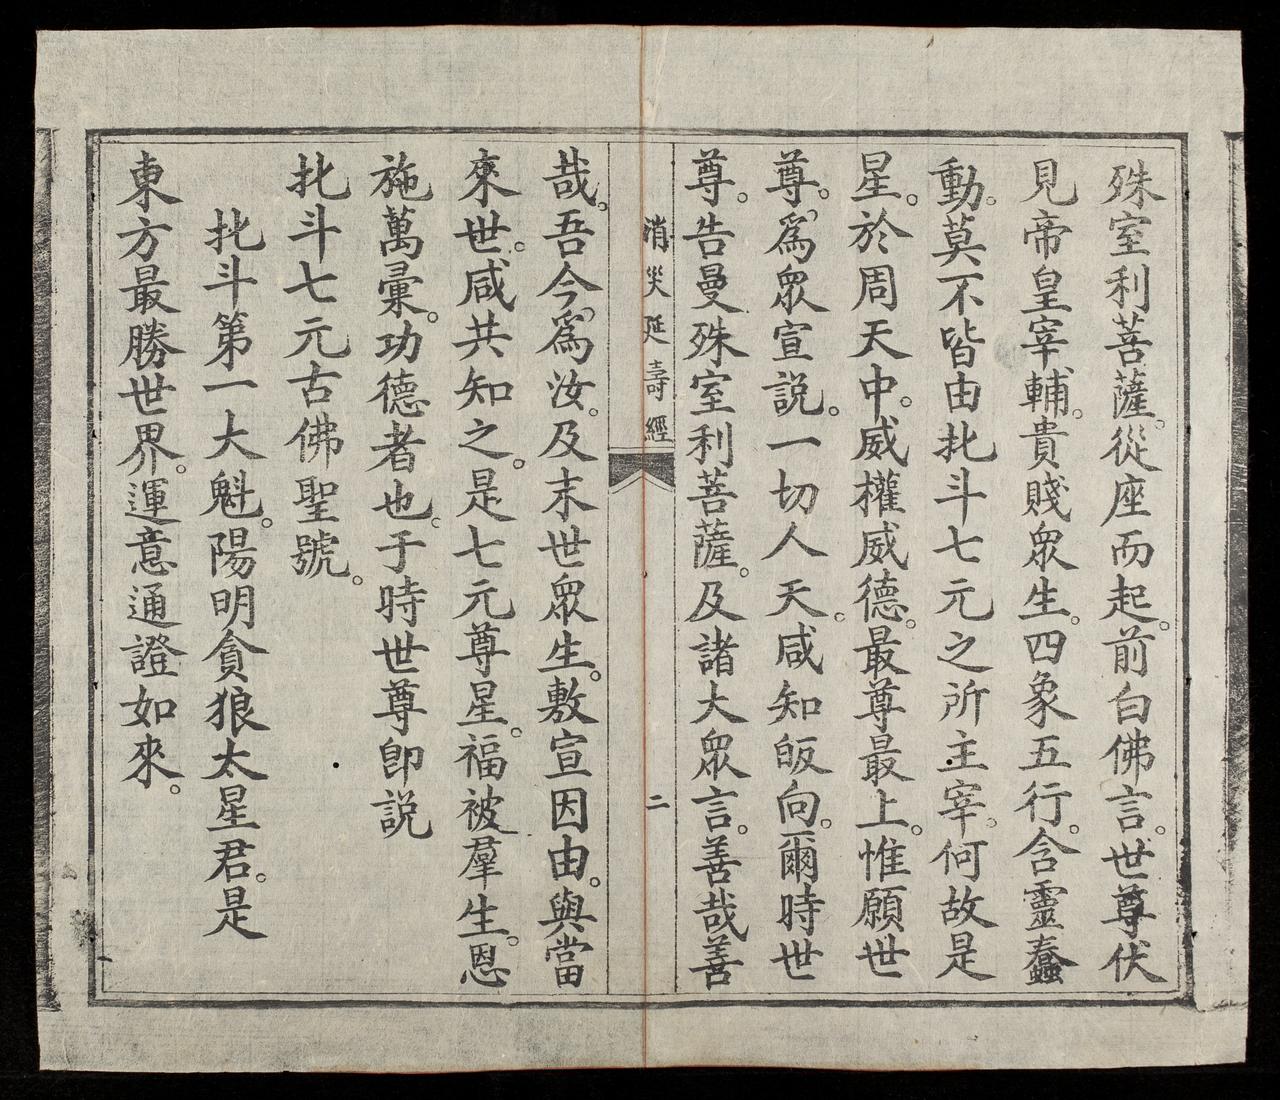 殊室利菩薩。從座而起。前白佛言。世尊伏
見帝皇宰輔。貴賤眾生。四象五行。含靈蠢
動。莫不皆由北斗七元之所主宰。何故是
星。於周天中。威權威德。最尊最上。惟願世
尊。爲眾宣說。一切人天。咸知皈向。爾時世
尊。告曼殊室利菩薩。及諸大眾言。善哉善
消災延壽經 二
哉。吾今。爲汝。及末世眾生。敷宣因由。與當
來世。咸共知之。是七元尊星。福被羣生。恩
施萬彙。功德者也。于時世尊卽説
北斗七元古佛聖號。
北斗第一大魁。陽明貪狼太星君。是
東方最勝世界。運意通證如來。